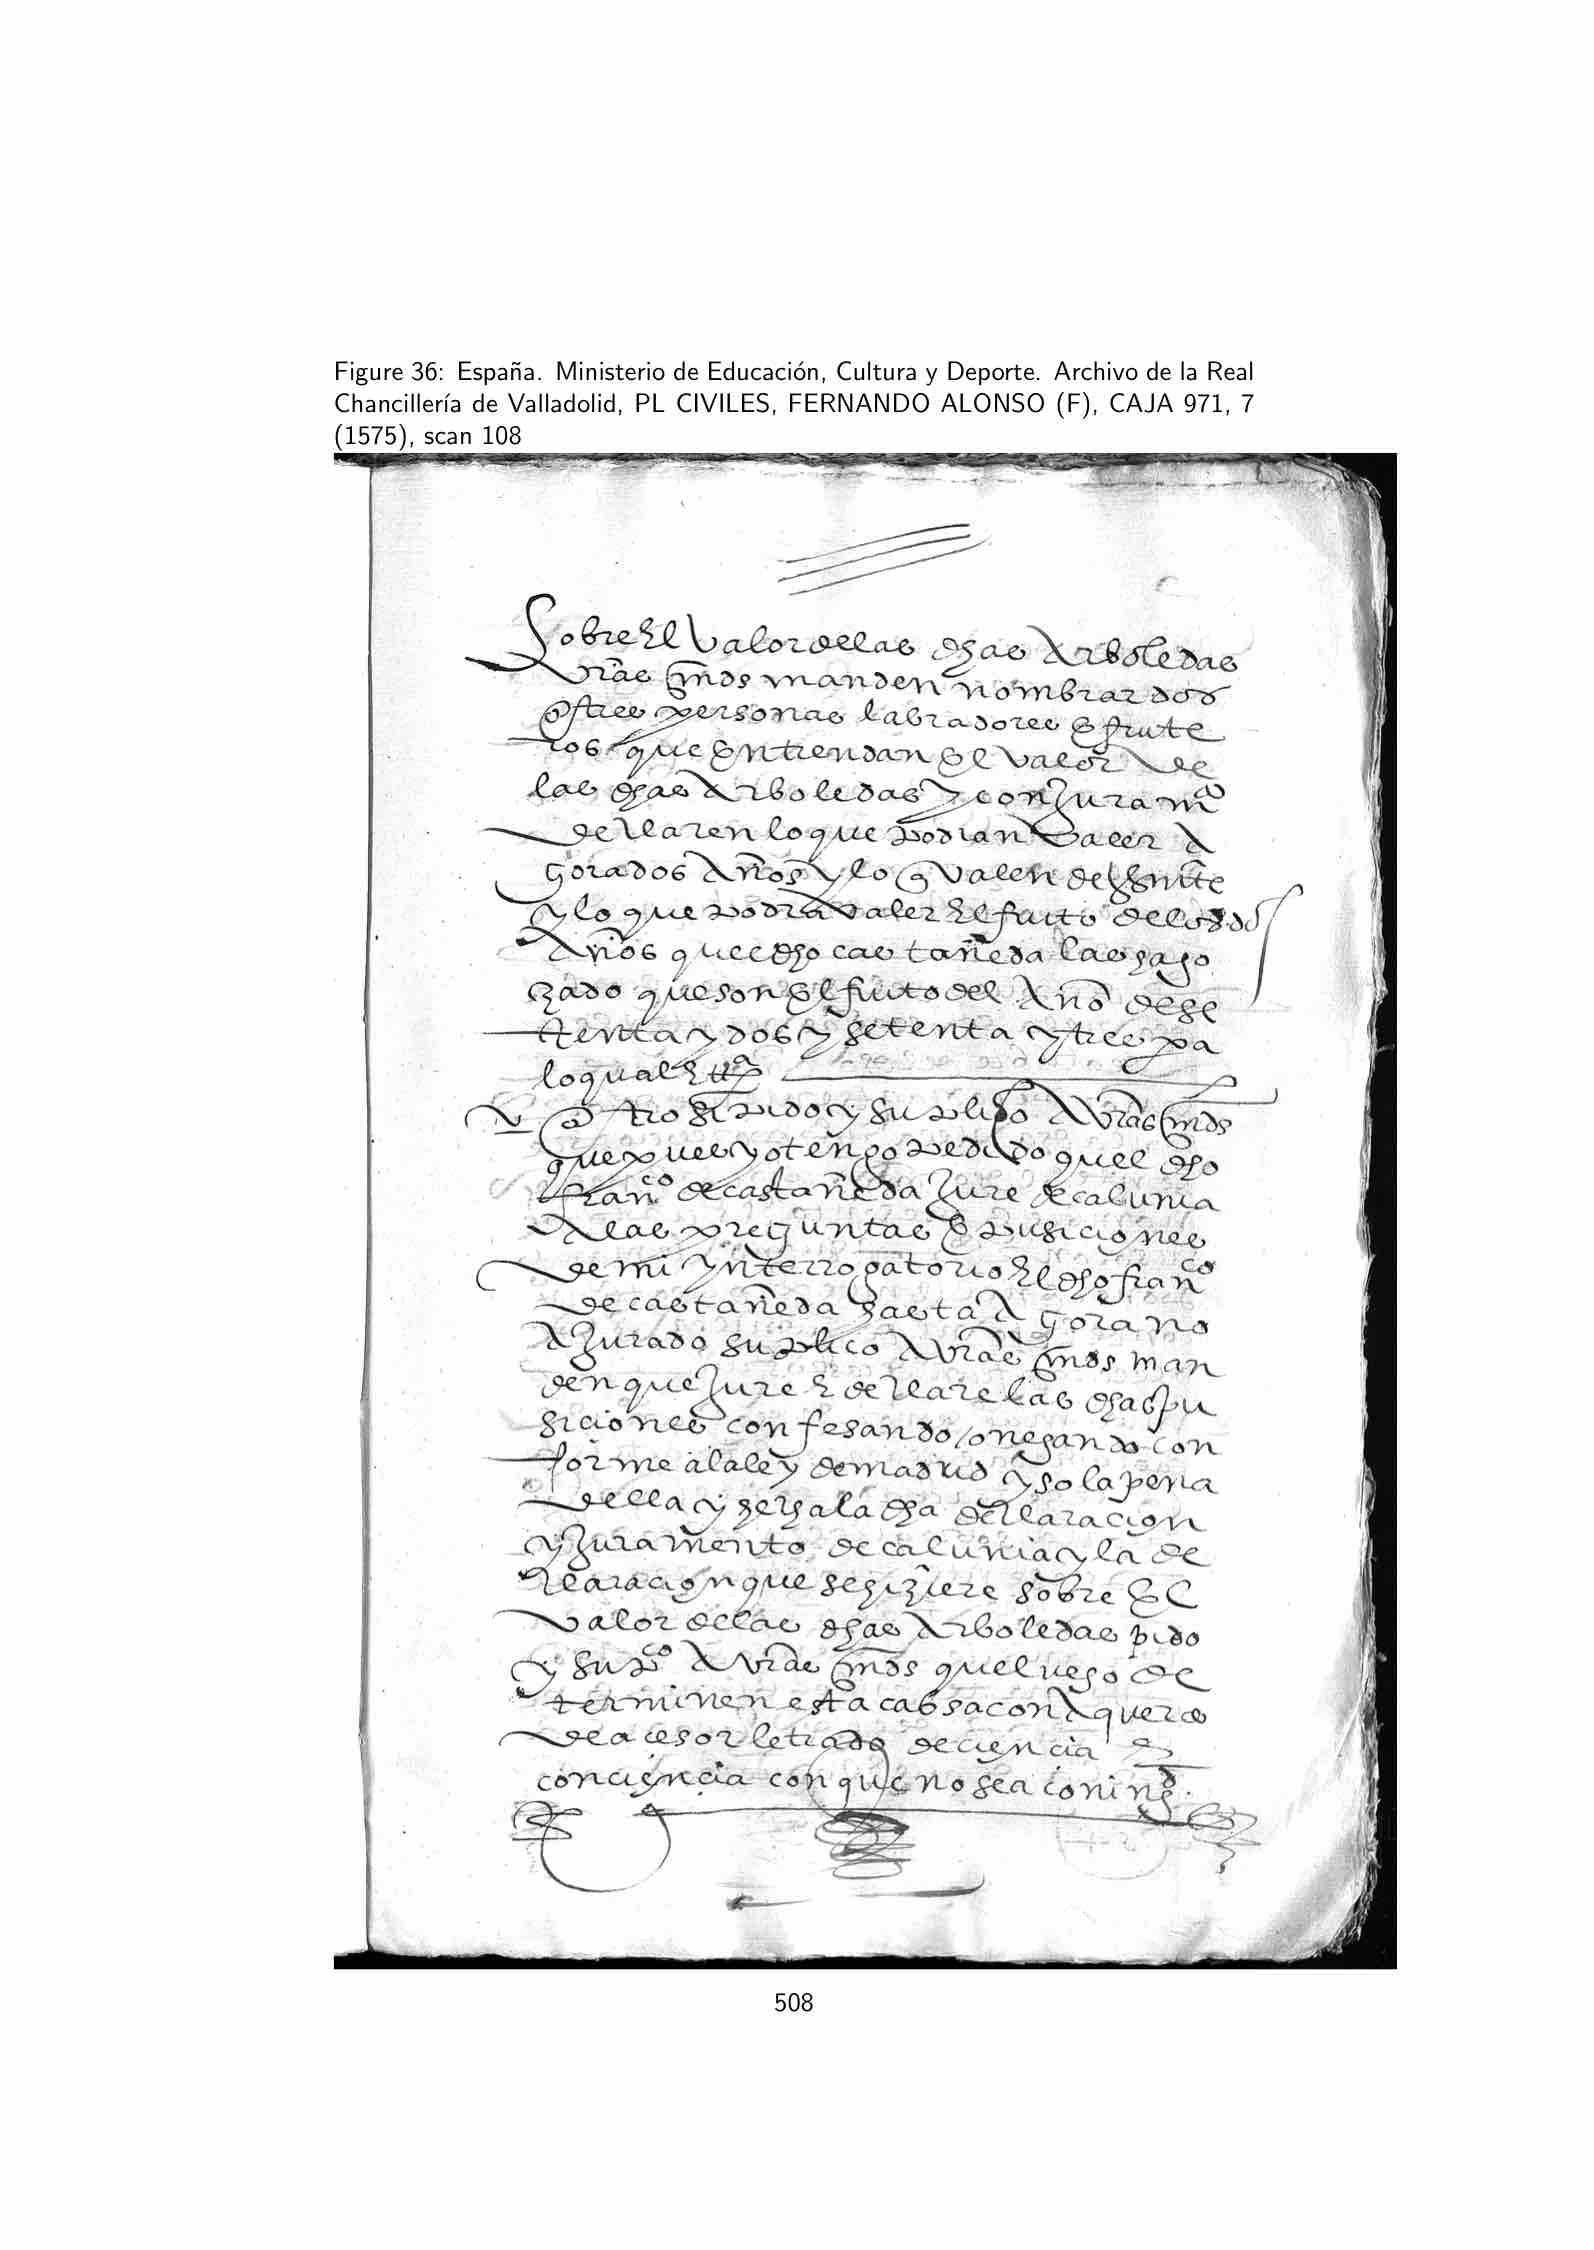 Figure 36: España. Ministerio de Educación, Cultura y Deporte. Archivo de la Real
Chancillería de Valladolid, PL CIVILES, FERNANDO ALONSO (F), CAJA 971, 7
(1575), scan 108
Sobre El valor de las dhas Arboledas
vras mds manden nombrar dos
o tres personas labradores E frute
ros que Entiendan El valor de
las dhas Arboledas y con Juramto
declaren lo que podian valer A
gora dos Años y lo q valen
y lo que podra valer El fruto de los dos
Años quel dho castañeda las a go
zado que son El fruto del Año de se
tenta y dos y setenta y tres pa
lo qual
otro si pido y suplico A vras mds
que pues yo tengo pedido quel dho
franco de castañeda Jure de calunia
A las preguntas E pusiciones
de mi ynterrogatorio El dho franco
de castañeda hasta A gora no
A Jurado suplico A vras mds man
den que Jure E declare las dhas pu
siciones confesando / o negando con
forme a la ley de madrid y so la pena
della y hecha la dha declaracion
y Juramento de calunia y la de
claracion que se hiziere sobre El
valor de las dhas Arboledas pido
y supco A vras mds que luego de
terminen esta cabsa con Aquerdo
de acesor letrado de ciencia E
conciencia con que no sea
508